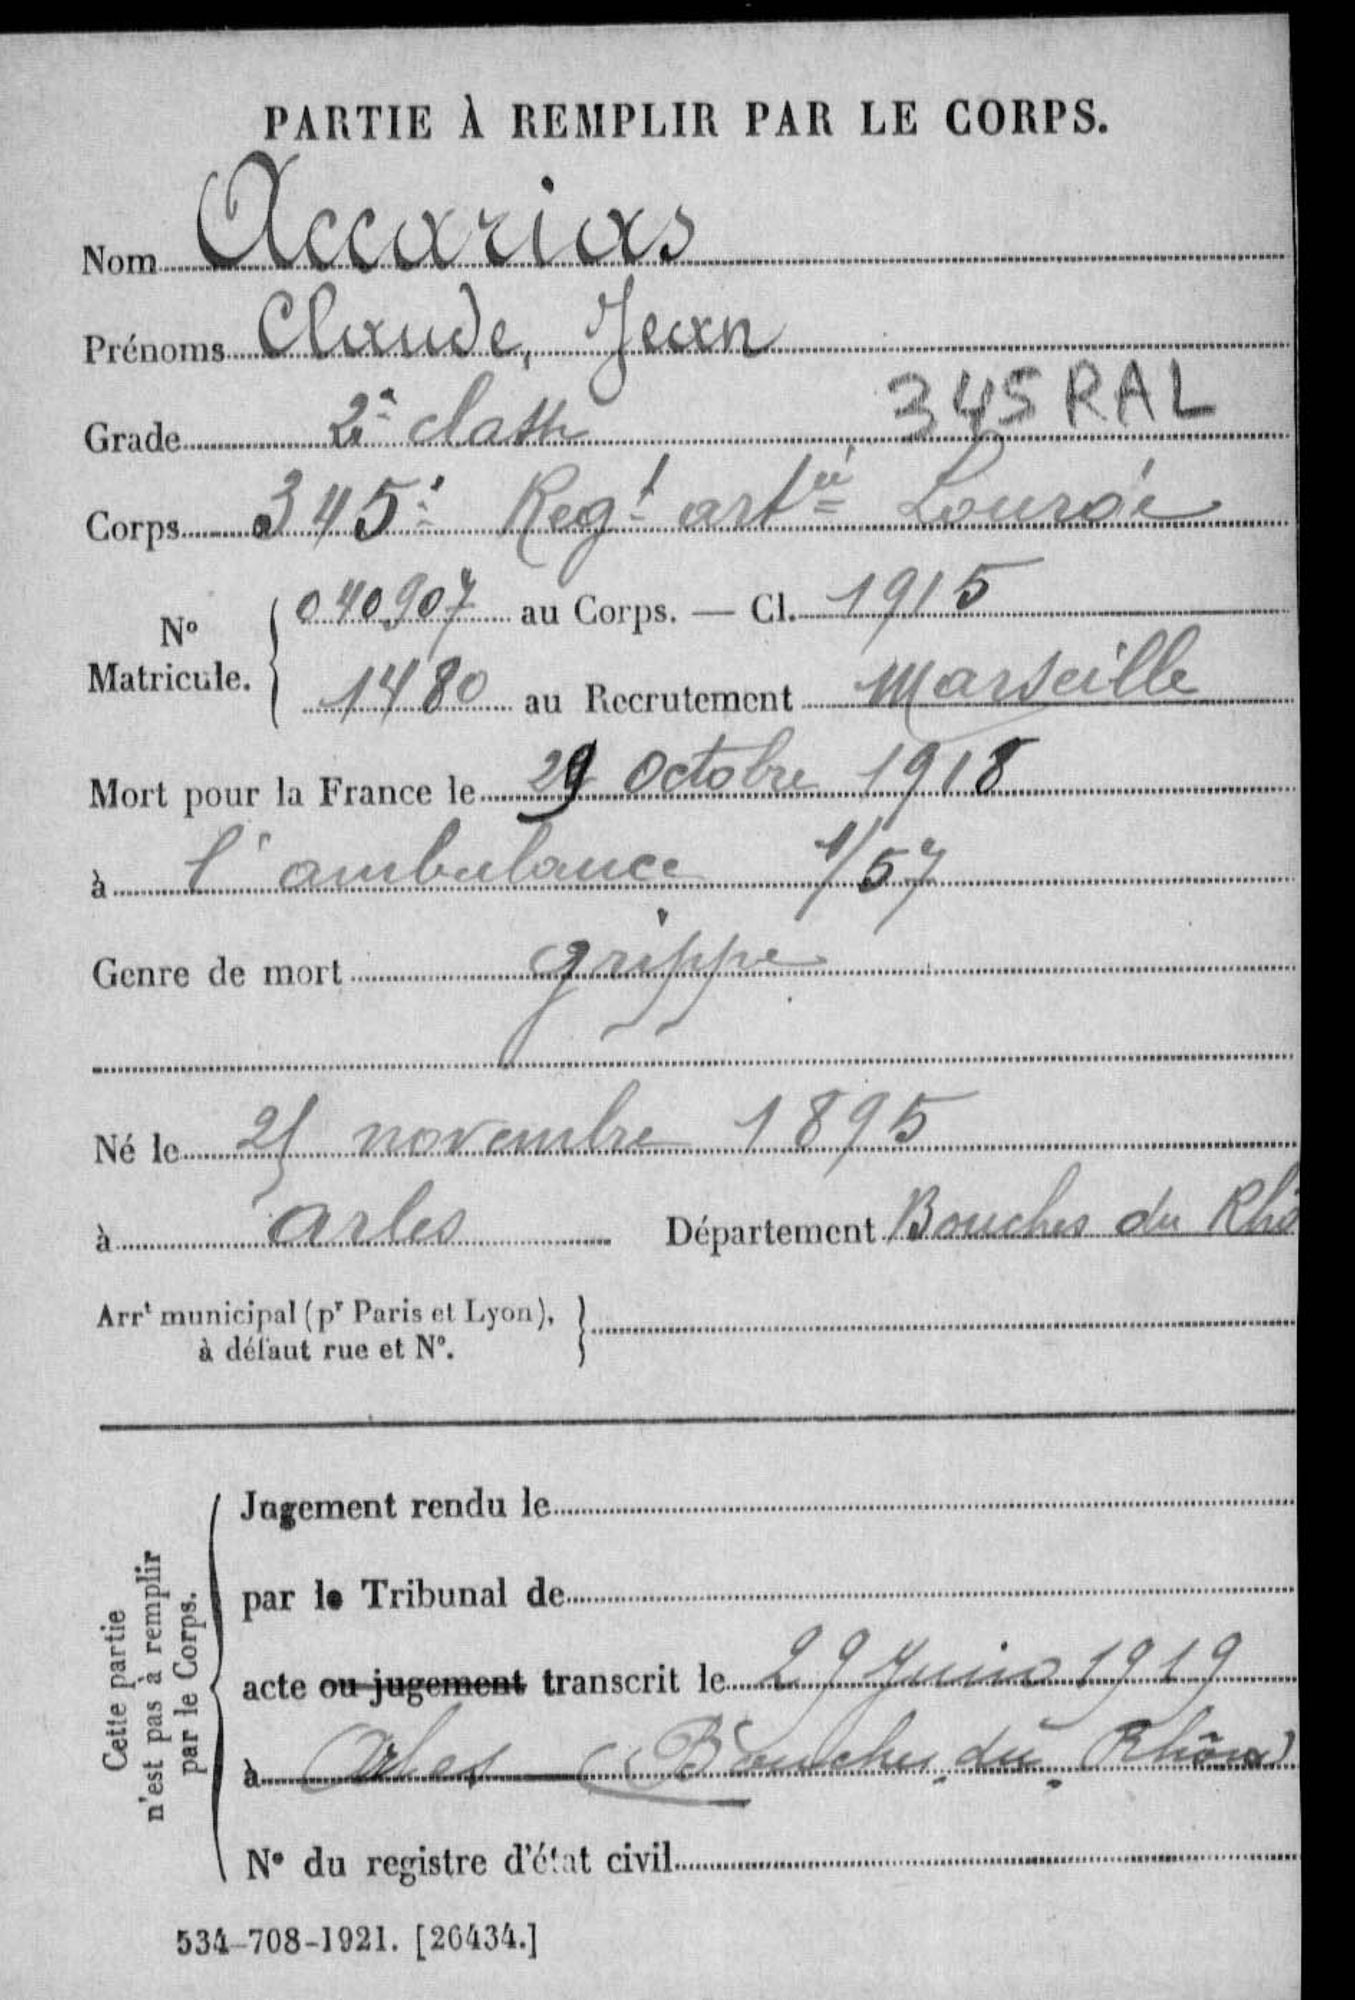 PARTIE À REMPLIR PAR LE CORPS.
Nom Accarias
Prénoms Claude, Jean
345 RAL
Grade 2e classe
Corps 345e Regt artie Lourde
No Matricule. 040907 au Corps. — Cl. 1915
1480 au Recrutement Marseille
Mort pour la France le 29 Octobre 1918
à l'ambulance 1/57
Genre de mort grippe
Né le novembre 1895
à arles Département Bouches du Rhô
Arrt municipal (pr Paris et Lyon),
à défaut rue et No.
Cette partie
n'est pas à remplir
par le Corps.
Jugement rendu le
par le Tribunal de
acte ou jugement transcrit le 29 Juin 1919
à Arles (Bouches du Rhône)
No du registre d'état civil
534-708-1921. [26434.]